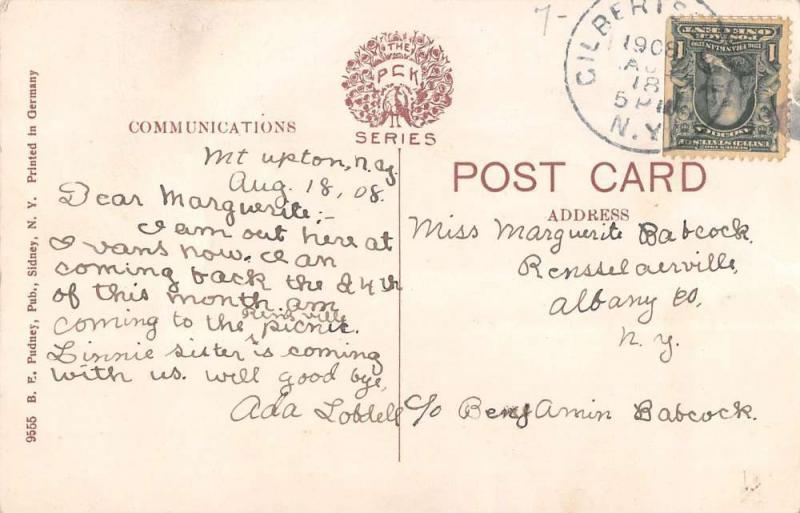 7-
GILBERTS
1908
AUG
18
5 PM
N.Y.
POSTAGE
ONE CENT
FRANKLIN
1
1
THE
PCK
SERIES
COMMUNICATIONS
Mt upton, n.y.
Aug. 18, 08.
Dear Marguerite;-
I am out here at
Ivans now. I an
coming back the 24th
of this month. am
coming to the Rens ville picnic.
Linnie sister is coming
with us. will good bye,
Ada Lobdell
POST CARD
ADDRESS
Miss Marguerite Babcock.
Rensselaerville,
Albany Co,
N. Y.
c/o Benjamin Babcock.
9555 B. F. Pudney, Pub., Sidney, N. Y. Printed in Germany